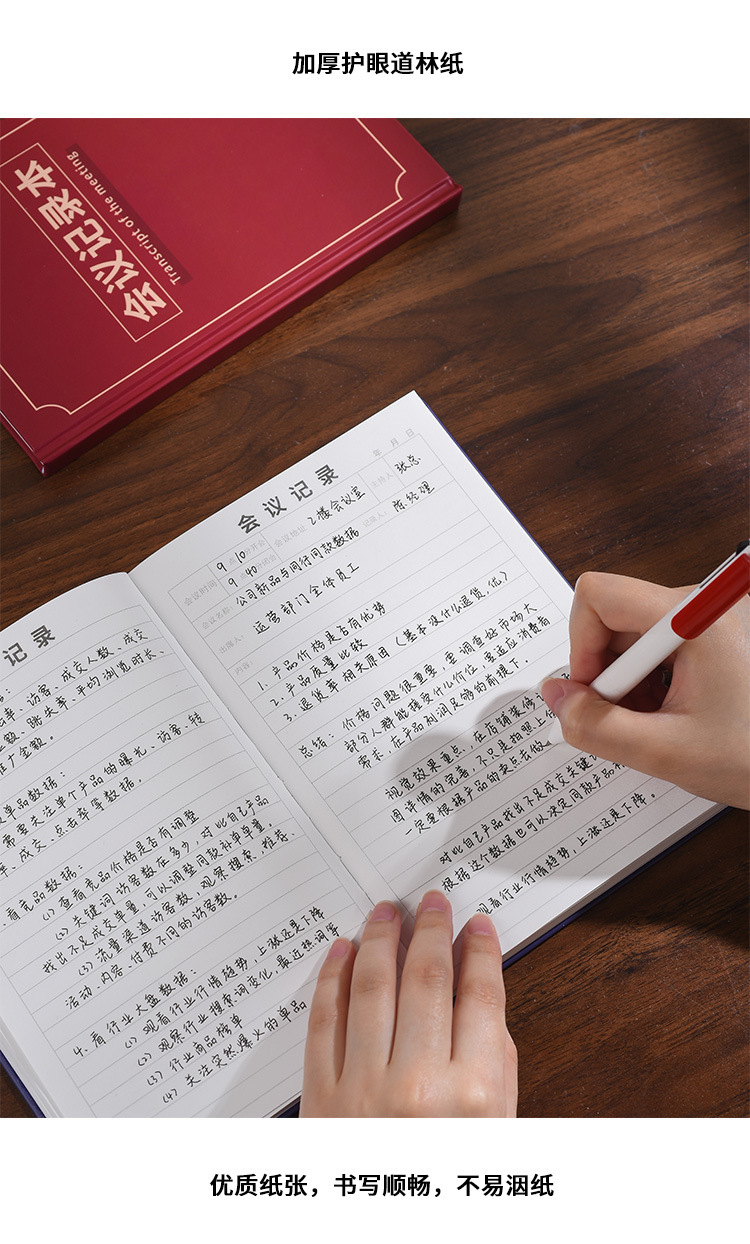 加厚护眼道林纸
会议记录本
Transcript of the meeting
记录
访客、成交人数、成交
跳失率、平均浏览时长、
推广金额。
单品数据：
需要关注单个产品的曝光、访客、转
成交、点击率等数据。
看竞品数据：
(1) 查看竞品价格是否有调整
(2) 关键词访客数在多少，对比自己产品
找出不足成交单量，可以调整同款补单单量。
(3) 流量渠道访客数，观察搜索、推荐、
活动、内容、付费不同的访客数。
4. 看行业大盘数据：
(1) 观看行业行情趋势，上涨还是下降
(2) 观察行业搜索词变化，最近热词等
(3) 行业商品榜单
(4) 关注突然爆火的单品
年 月 日
会议记录
会议时间 9 点 10 分开会 会议地址 2楼会议室 主持人 张总
9 点 40 记录人： 陈经理
会议名称： 公司新品与同行同款数据
出席人： 运营部门全体员工
内容：
1. 产品价格是否有优势
2. 产品质量比较
3. 退货率相关原因（基本没什么退货，优）
总结：价格问题很重要，要调查好市场大
部分人群能接受什么价位，要适应消费者
需求，在产品利润足够的前提下。
视觉效果重点，在店铺装修
图详情的完善，不只是拍照上
一定要根据产品的卖点去做
对比自己产品找出不足成交关键
根据这个数据也可以决定同款产品
观看行业行情趋势，上涨还是下降。
优质纸张，书写顺畅，不易洇纸